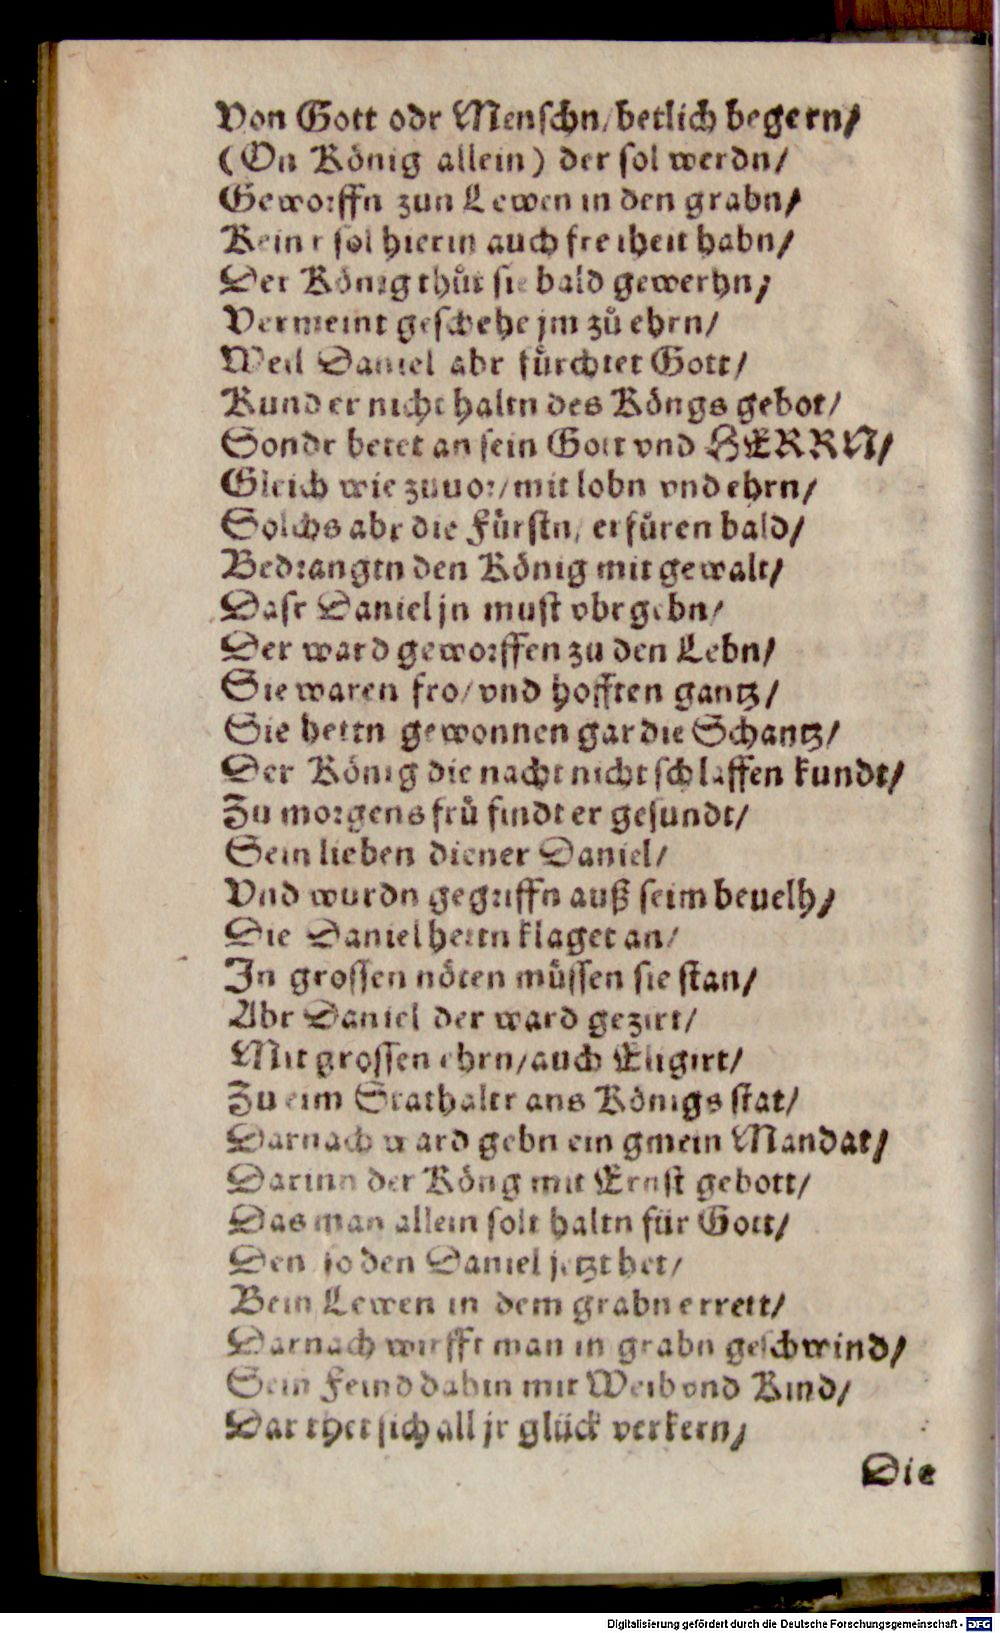 Von Gott odr Menschn/betlich begern/
(On König allein) der sol werdn/
Geworffn zun Lewen in den grabn/
Keinr sol hierin auch freiheit habn/
Der König thůt sie bald gewerhn/
Vermeint geschehe jm zů ehrn/
Weil Daniel abr fůrchtet Gott/
Kund er nicht haltn des Köngs gebot/
Sondr betet an sein Gott vnd HERRN/
Gleich wie zuuor/mit lobn vnd ehrn/
Solchs abr die Fůrstn/ erfůren bald/
Bedrangtn den König mit gewalt/
Dasr Daniel jn must vbrgebn/
Der ward geworffen zu den Lebn/
Sie waren fro/vnd hofften gantz/
Sie hettn gewonnen gar die Schantz/
Der König die nacht nicht schlaffen kundt/
Zu morgens frů findt er gesundt/
Sein lieben diener Daniel/
Vnd wurdn gegriffn auß seim beuelh/
Die Daniel hettn klaget an/
In grossen nöten můssen sie stan/
Abr Daniel der ward gezirt/
Mit grossen ehrn/auch Eligirt/
Zu eim Stathaltr ans Königs stat/
Darnach ward gebn ein gmein Mandat/
Darinn der Köng mit Ernst gebott/
Das man allein solt haltn für Gott/
Den so den Daniel jetzt het/
Bein Lewen in dem grabn errett/
Darnach wirfft man in grabn geschwind/
Sein Feind dahin mit Weib vnd Kind/
Dar thet sich all jr glück verkern/
Die
Digitalisierung gefördert durch die Deutsche Forschungsgemeinschaft - DFG